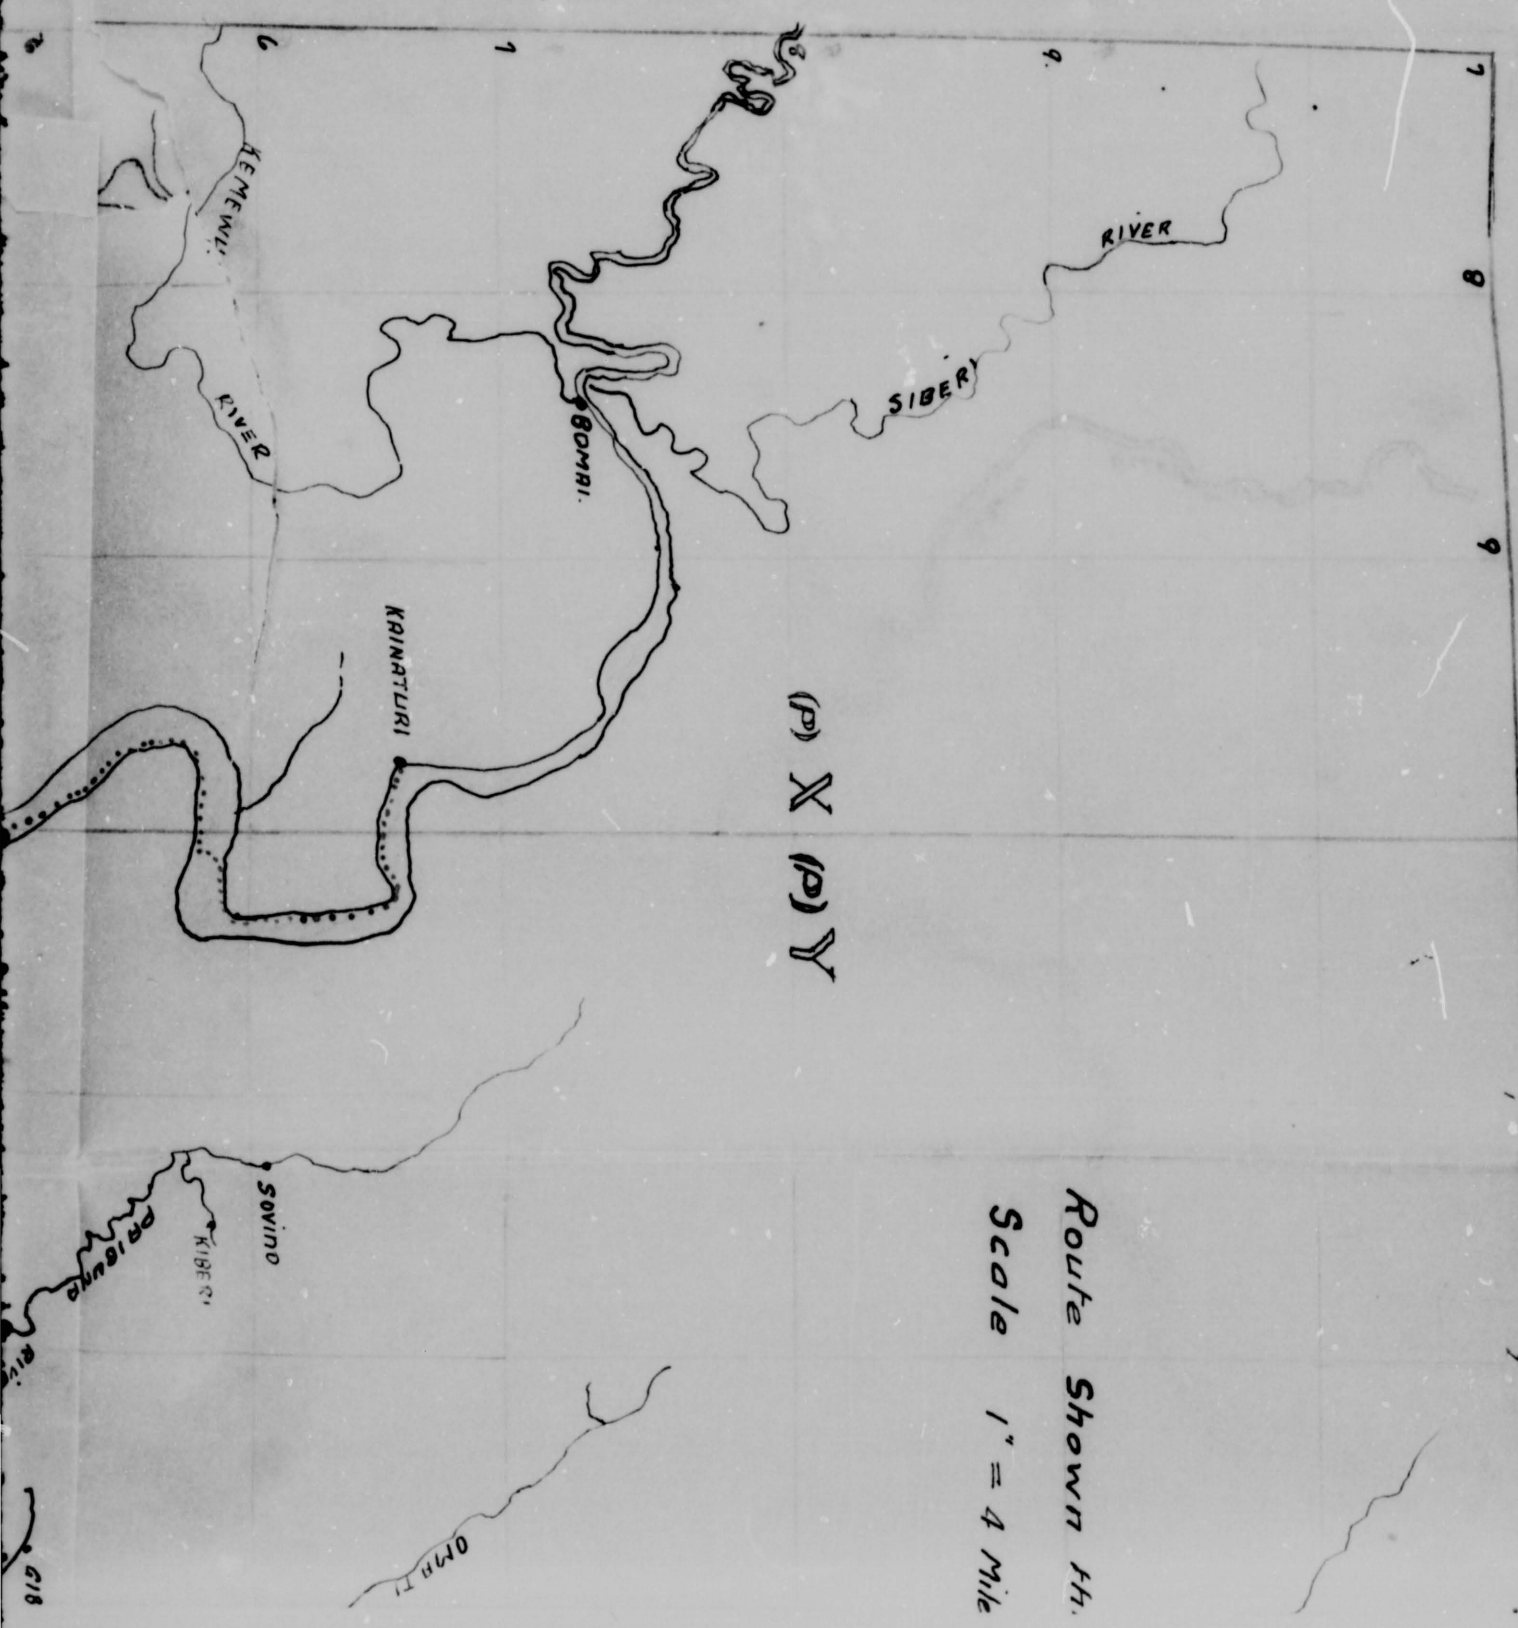 Route Shown th.
Scale 1" = 4 Mile
(P) X (P) Y
7
8
9
9.
8
7
6
RIVER
SIBERI
BOMAI.
KAINATURI
KEMEWU
RIVER
SOVINO
KIBERI
PAIBUNA
RIV
OMATI
GIB